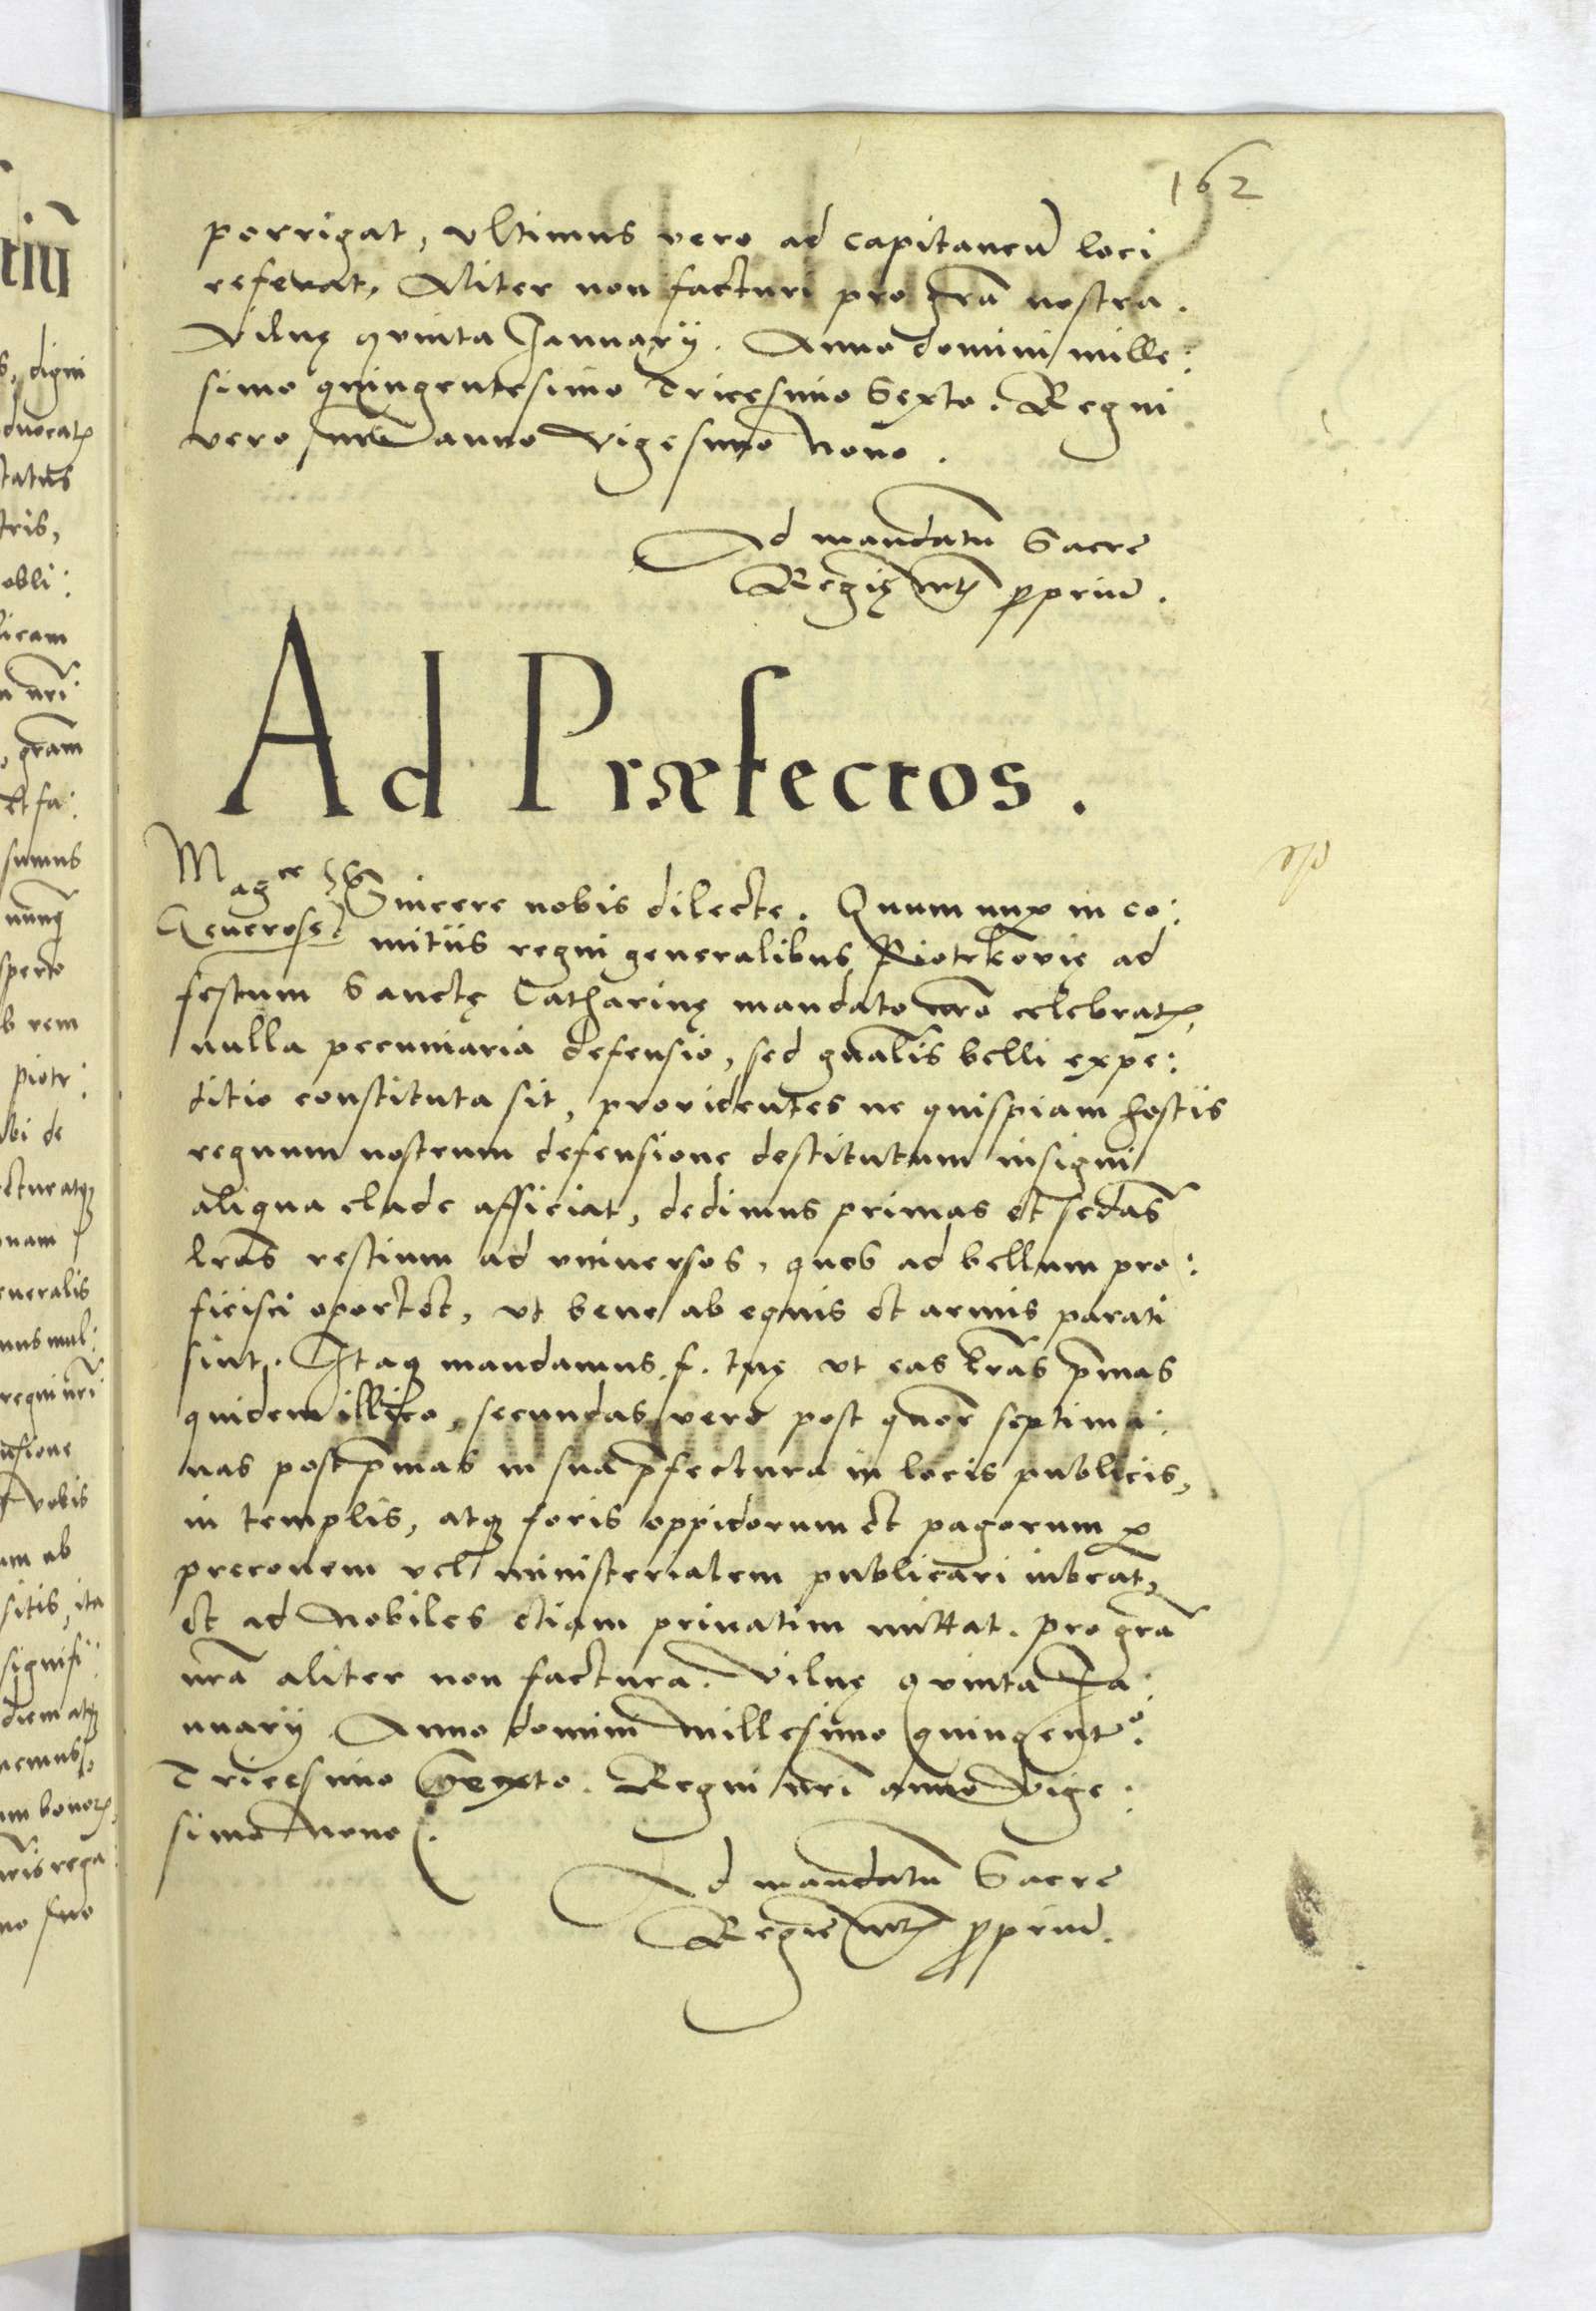 162
porrigat, vltimus vero ad capitaneū loci
referat, Aliter non facturi pro grã nostra.
Vilnę qvinta Januarÿ. Anno domini mille:
simo quingentesimo Tricesimo Sexto. Regni
vero nrĩ anno Vigesimo Nono.
Ad mandatū Sacre
Regię mtis ꝓpriū.
Ad Præfectos.
Magce
Generose Sincere nobis dilecte. Quum nuꝑ in co:
mitiis regni generalibus Piotrkovię ad
festum Sanctę Catharinę mandato nrõ celebratis,
nulla pecuniaria defensio, sed gnãlis belli expe:
ditio constituta sit, providentes ne quispiam hostis
regnum nostrum defensione destitutum insigni
aliqua clade afficiat, dedimus primas et secdãs
lrãs restium ad vniversos, quos ad bellum pro:
ficisci oportet, vt bene ab equis et armis parati
sint. Itaqꝫ mandamus f. tuę vt eas lrãs pmãs
quidem illico, secundas vero post quor septima:
nas post pmãs in sua pfectura in locis publicis,
in templis, atqꝫ foris oppidorum et pagorum ꝑ
preconem vel ministerialem publicari iubeat,
et ad Nobiles etiam privatim mittat. pro grã
nrã aliter non factura. Vilnę qvinta Ja:
nuarÿ Anno domini Millesimo quingento:
Tricesimo Sexto. Regni nrĩ anno Vige:
simo Nono.
Ad mandatū Sacre
Regie mtis ꝓpriū.